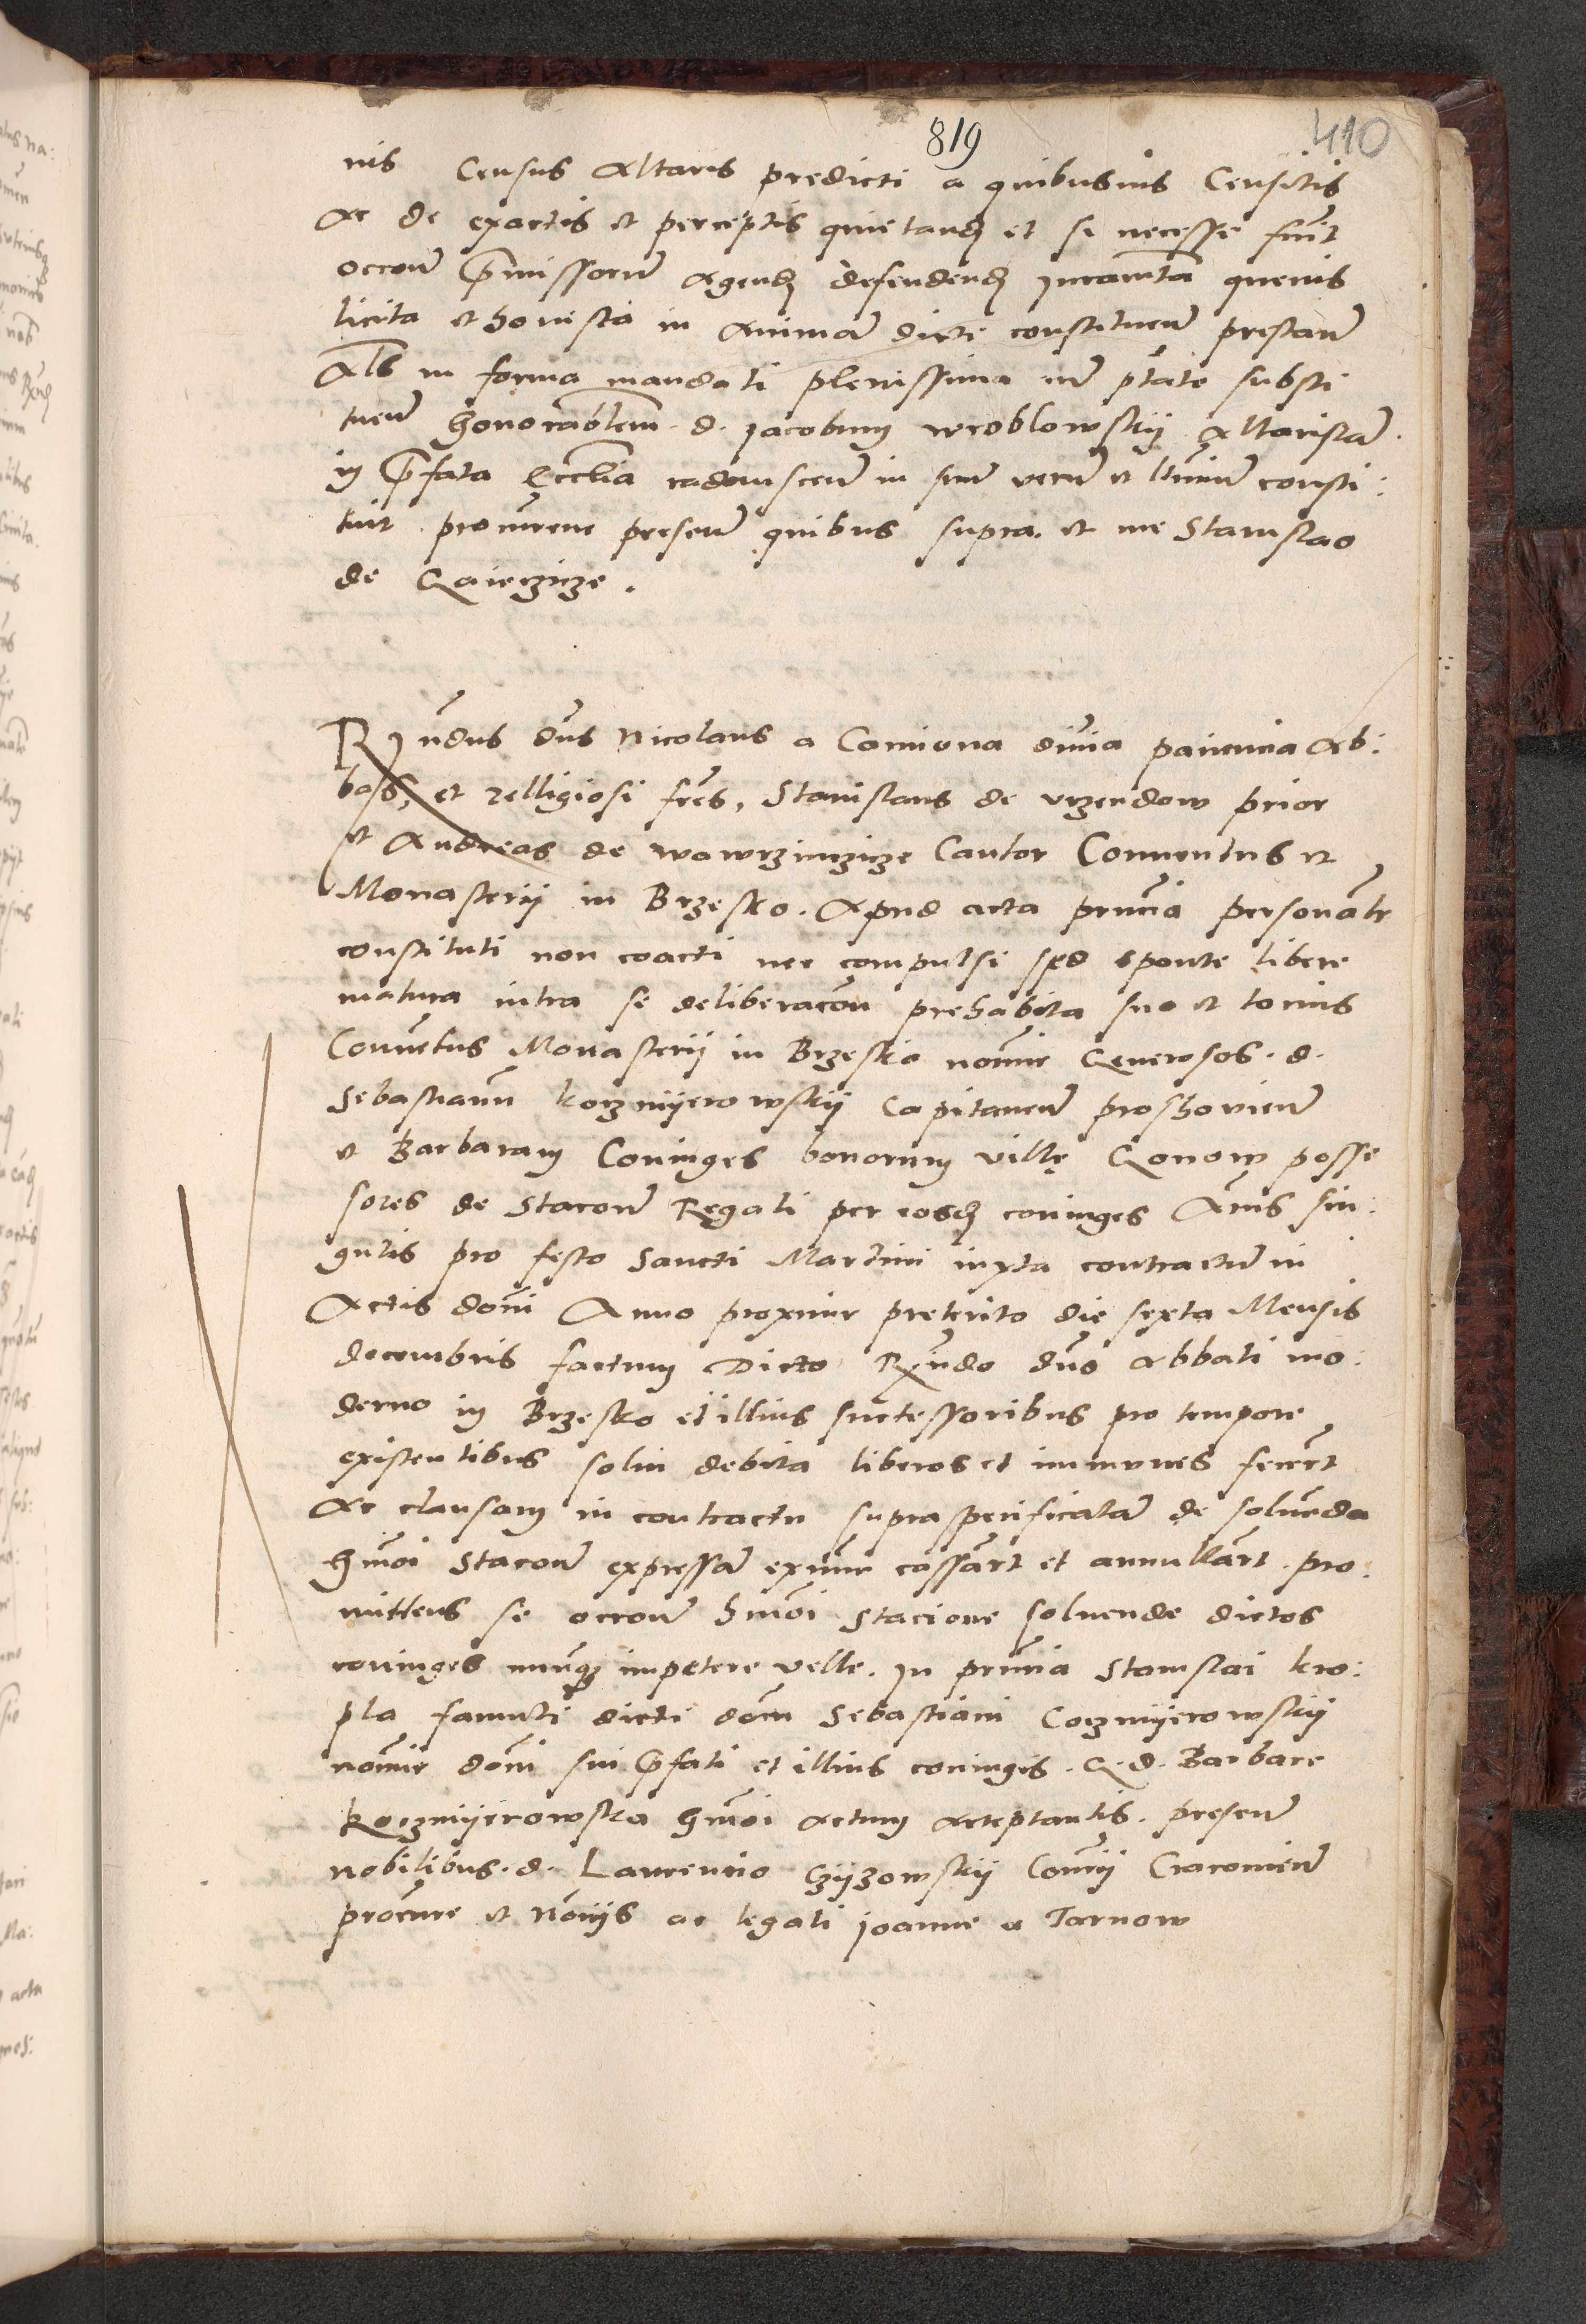 819
410
nis Census Altaris predicti a quibusuis Censitis
Ac de exactis et perceptis quietand et si necesse fuit
occone p̄missorum Agend defendend Iuramta queuis
licita et honesta in Animā dicte constituen prestan
Als in forma mandati plenissima cum ptate substi
tuen Honorablem d. Jacobum Wroblowskij Altaristā
in p̄fata Ecclia in suum verum et ltimum consti:
tuit procurem presen quibus supra et me Stanislao
de
R̄ndus dns Nicolaus a Comiona diuia pacientia Ab:
bas, et relligiosi frēs, Stanislaus de Vrzendow prior
et Andreas de wawrzinczicze Cantor Conuentus et
Monasterij in Brzesko. Apud acta pn̄cia personaltr
constituti non coacti nec compulsi sed sponte libere
matura intra se deliberacōn prehabita suo et tocius
Conuētus Monasterij in Brzesko nomine Generosos. d.
Sebastianū koczmijerowskij Capitaneū proshouien
et Barbaram Coniuges bonorum ville Gonow posse
sores de Stacone Regali per eosd coniuges Annis sin:
gulis pro festo Sancti Martini iuxta contractū in
Actis domi Anno proxime preterito die sexta Mensis
decembris factum Dicto R̄ndo dno Abbati mo:
derno in Brzesko et illius successoribus pro tempore
existentibus solui debita liberos et immunes fecert
Ac clausam in contractu supraspecificatā de soluenda
hmōi Stacone expressā exnunc cassart et annullart. pro:
mittens se occone hmōi Stacione soluende dictos
coniuges nunq̄ impetere velle. In pn̄cia Stanislai kro:
pla famuli dicti dom Sebastiani Coczmijerowskij
nomine dom sui p̄fati et illius coniugis. G. d. Barbare
Koczmijerowska hmōi Actum Acceptantis. presen
nobilibus. d. Laurentio Czijzowskij Consrij Cracouien
procure et nōrijs ac legali Joanne a Tarnow